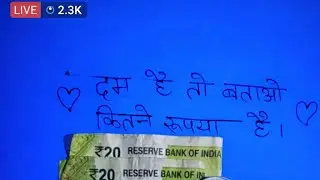 LIVE 2.3K
दम है तो बताओ
कितने रूपया है।
₹20 RESERVE BANK OF INDIA
₹20 RESERVE BANK OF IN